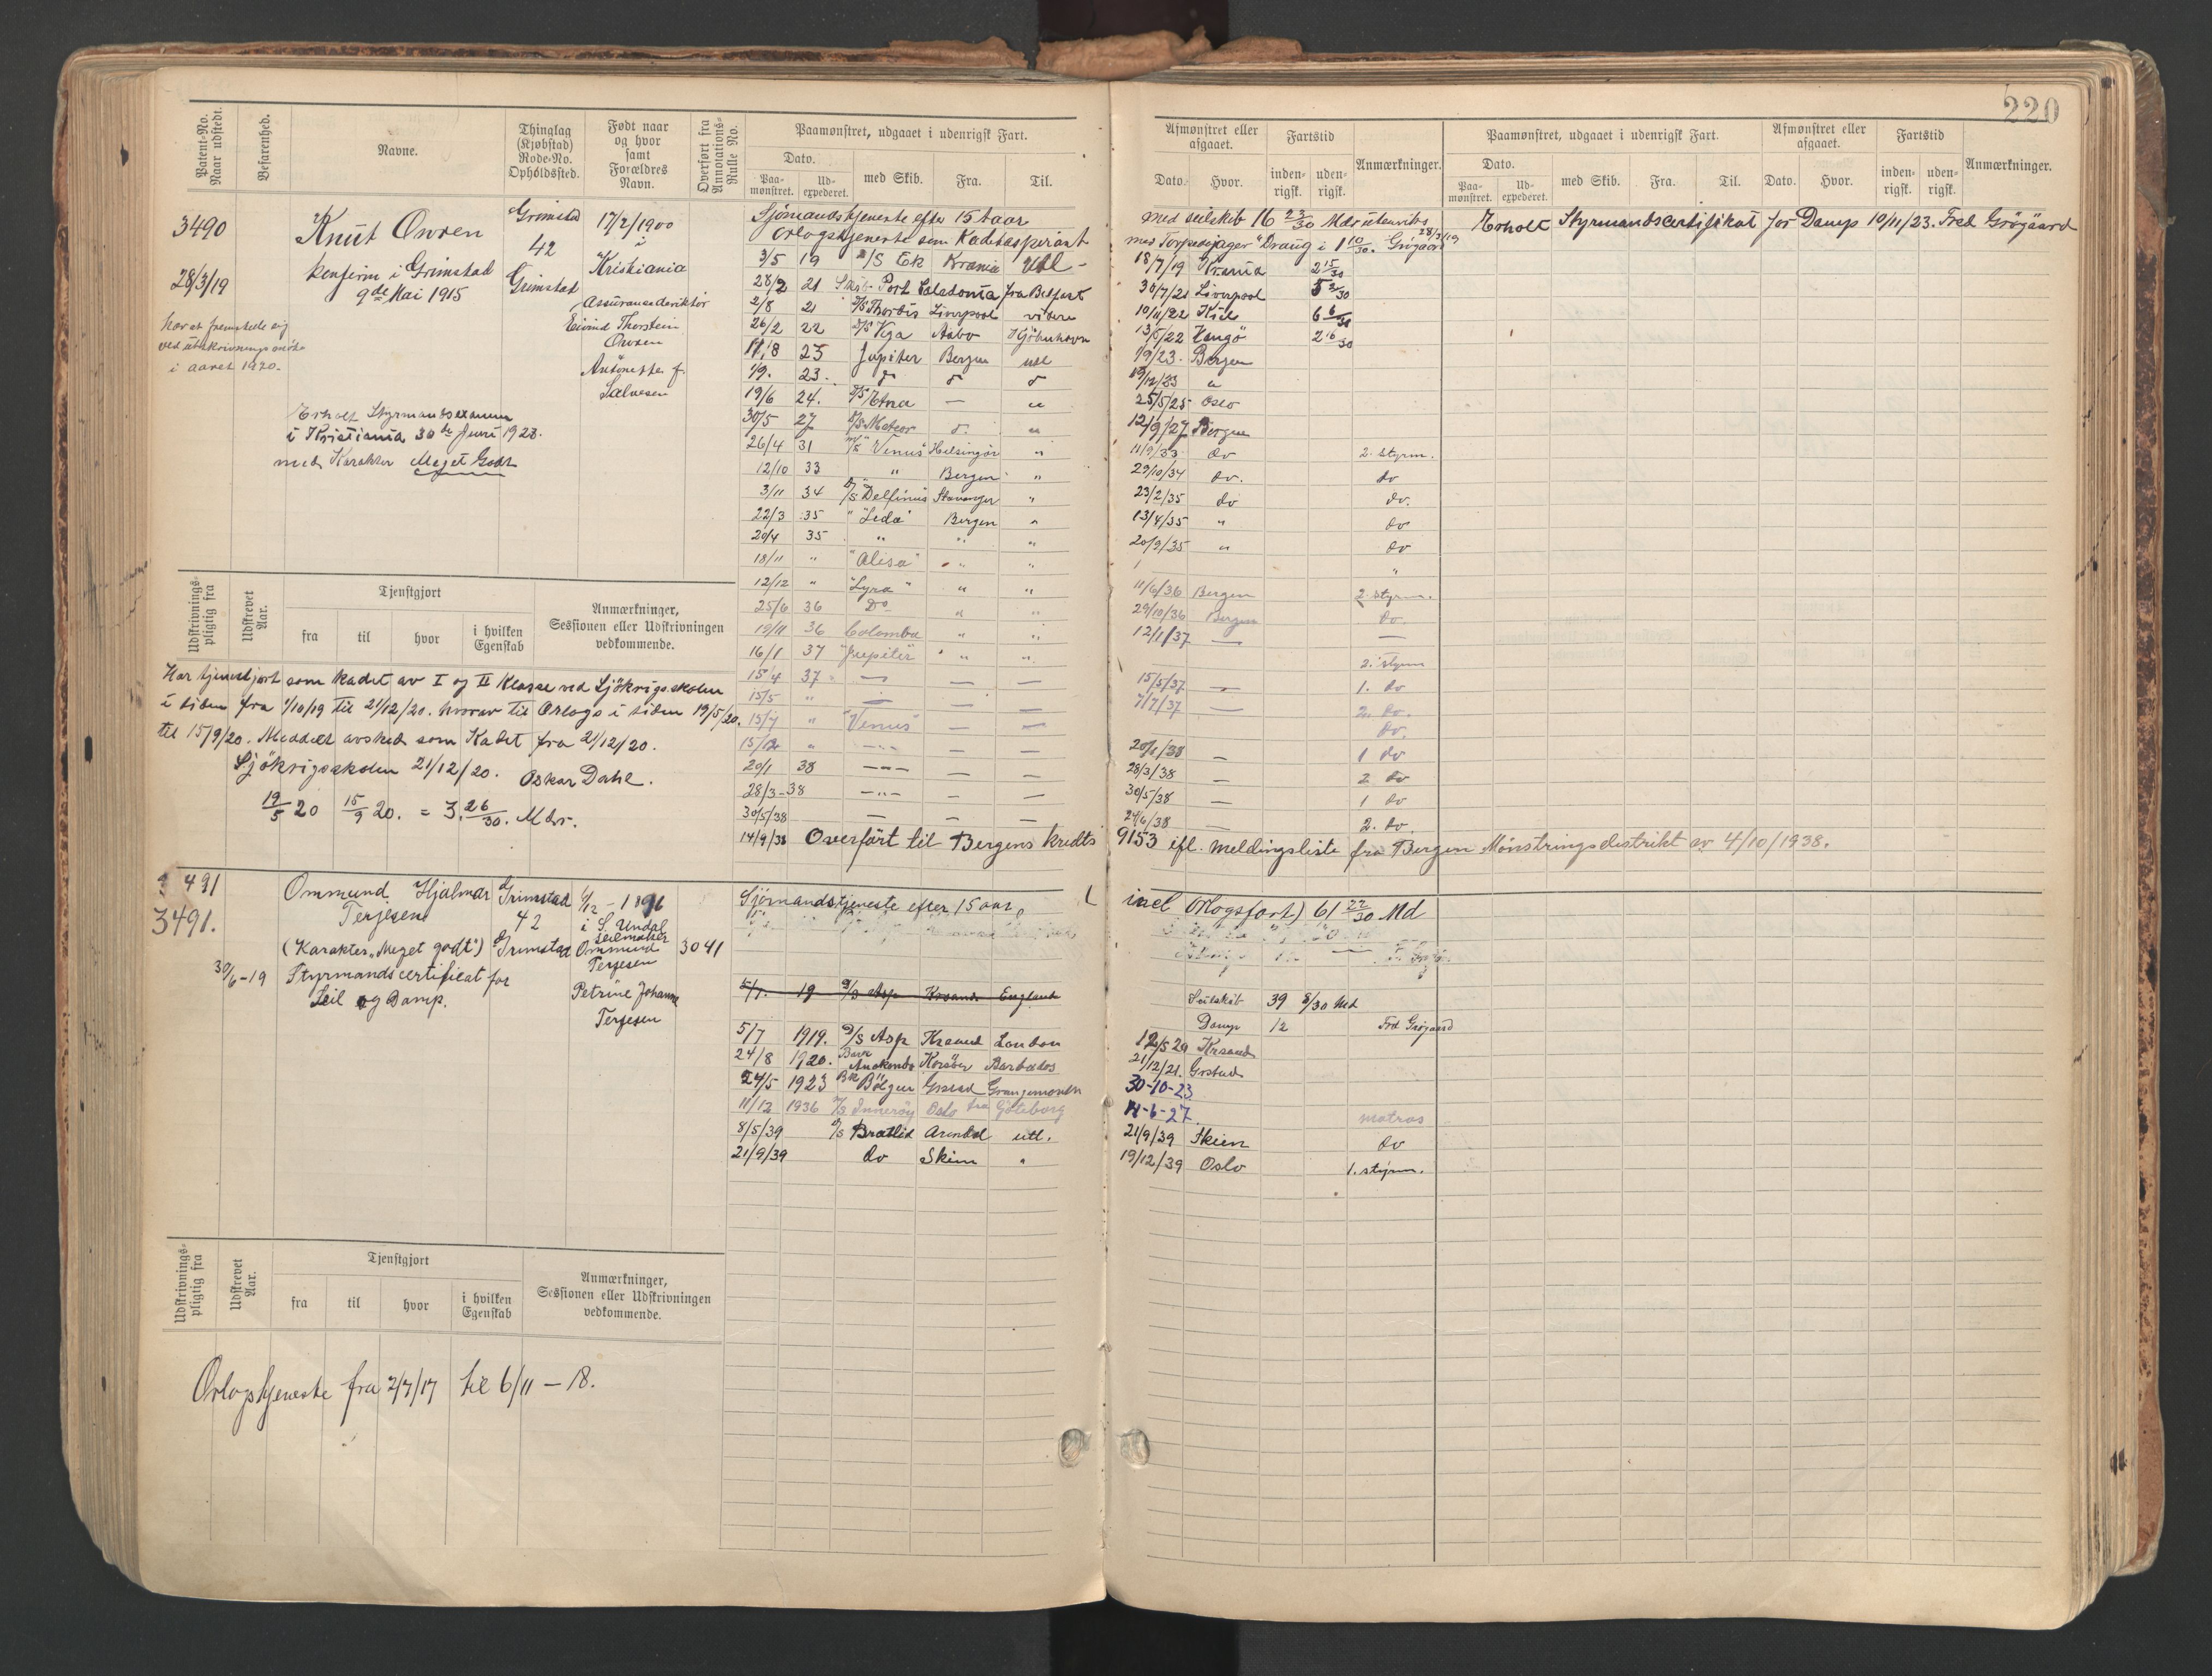 220
Patent-No. Naar udstedt.
Befarenhed.
Navne.
Thinglag (Kjøbstad) Rode-No. Opholdssted.
Født naar og hvor samt Forældres Navn.
Overført fra Annotations-Rulle No.
Paamønstret, udgaaet i udenrigsk Fart.
Dato.
Paa-mønstret.
Ud-expederet.
med Skib.
Fra.
Til.
Afmønstret eller afgaaet.
Dato.
Hvor.
Fartstid
inden-rigsk.
uden-rigsk.
Anmærkninger.
Paamønstret, udgaaet i udenrigsk Fart.
Dato.
Paa-mønstret.
Ud-expederet.
med Skib.
Fra.
Til.
Afmønstret eller afgaaet.
Dato.
Hvor.
Fartstid
inden-rigsk.
uden-rigsk.
Anmærkninger.
3490
28/3/19
Knut Omren
konfirm i Grimstad
9de Mai 1915
Grimstad
42
Grimstad
17/2/1900
i
Kristiania
Assurancedirektör
Eivind Thorstein
Antonette f.
Salvesen
Har at fremstille sig
ved utskrivnings
i aaret 1920.
Erholt Styrmandsexamen
i Kristiania 30de Juni 1923.
med Karakter Meget Godt
Sjömandstjeneste efter 15 aar
med seilskib 16 23/30 Mdr utenriks
Orlogstjeneste som Kadetaspirant
med Torpedojager "Draug" i 1 10/30. Grögaard 28/3/19
Erholt Styrmandscertifikat for Damp 10/11/23. Fred Grögaard
3/5 19 Ek Krania Utl - 18/7/19 Krania 2 15/30
28/2 21 Skib Port Caledonia fra Belfast 30/7/21 Liverpool
2/8 21 D/S Thorbis Liverpool videre 10/11/22 Kiel 6 6/30
26/2 22 Aabo Kjöbenhavn 13/5/22 Hangö 2 16/30
11/8 23 Jupiter Bergen utl 1/9/23. Bergen
1/9. 23. do do do 19/12/23 "
19/6 24. D/S Etna — " 25/5/25 Oslo
30/5 27 D/S Meteor do. " 12/9/27 Bergen
26/4 31 M/S "Venus" Helsingör " 11/9/33 do 2. styrm.
12/10 33 " Bergen " 29/10/34 do. do
3/11 34 D/S "Delfinus" Stavanger " 23/2/35 do do.
22/3 35 " "Leda" Bergen " 13/4/35 " do
20/4 35 " " " 20/9/35 " do
18/11 " "Alisa" " " "
12/12 " "Lyra" " " 11/6/36 Bergen 2. styrm.
25/6 36 Do " " 29/10/36 Bergen do.
19/11 36 Colombia " " 12/1/37 — —
16/1 37 "Jupiter" " " 2. styrm
15/4 37 — — — 15/5/37 — 1. do
15/5 " — — — 7/7/37 — 2. do.
15/7 " "Venus" — — do.
15/12 " — — — 20/1/38 — 1 do
20/1 38 — — — 28/3/38 — 2 do
28/3-38 — — — 30/5/38 — 1 do
30/5/38 — — 24/6/38 — 2. do.
14/9/38 Overfört til Bergens kredts 9153 ifl. meldingsliste fra Bergen Mönstringsdistrikt av 4/10/1938.
Udskrivnings-pligtig fra
Udskrevet Aar.
Tjenstgjort
fra
til
hvor
i hvilken Egenskab
Anmærkninger, Sessionen eller Udskrivningen vedkommende.
Har tjenestgjort som kadet av I og II Klasse ved Sjökrigsskolen
i tiden fra 1/10/19 til 21/12/20. hvorav til Orlogs i tiden 19/5/20.
til 15/9/20. Meddelt avsked som Kadet fra 21/12/20.
Sjökrigsskolen 21/12/20. Oskar Dahl.
19/5 20 15/9 20. = 3. 26/30. Mdr.
3491
3491.
30/6-19
Ommund Hjalmar
Terjesen
(Karakter "Meget godt")
Styrmandscertificat for
Seil og Damp.
Grimstad
42
Grimstad
1/12 - 1896
i S. Undal
Seilmaker
Ommund
Terjesen
Petrine Johanne
Terjesen
3041
Sjömandstjeneste efter 15 aar, (incl Orlogsfart) 61 22/30 Md
5/7. 19 D/S Asp Krsand England
Seilskib 39 8/30 Md
Damp 12 Frd Grögaard
5/7 1919. D/S Asp Krsand London 12/5 20 Krsand
24/8 1920. Bark Korsör Barbados 21/12/21. Grstad
24/5 1923 Bk Bölgen Grstad Grangemouth 30-10-23
11/12 1936 D/S Inneröy Oslo fra Göteborg 11-6-27. matros
8/5/39 D/S Bratlid Arendal utl. 21/9/39 Skien do
21/9/39 do Skien " 19/12/39 Oslo 1. styrm.
Udskrivnings-pligtig fra
Udskrevet Aar.
Tjenstgjort
fra
til
hvor
i hvilken Egenskab
Anmærkninger, Sessionen eller Udskrivningen vedkommende.
Orlogstjeneste fra 2/7/17 til 6/11 - 18.